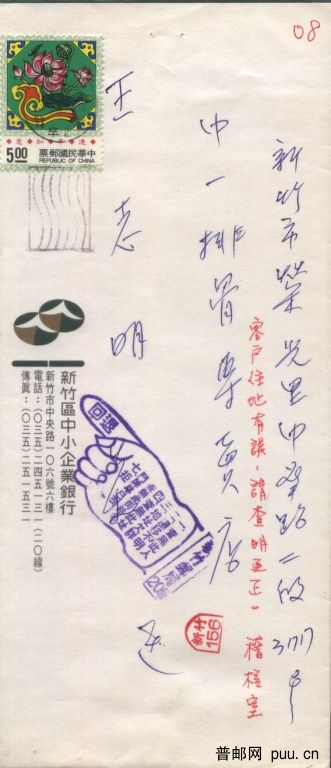 08
新竹市榮光里中華路二段377号
中一排骨專賣店
王志明
客戶住址有誤,請查明更正。稽核室
5.00
中華民國郵票
REPUBLIC OF CHINA
新竹區中小企業銀行
新竹市中央路一〇六號六樓
電話:(〇三五)二四五一三一(二〇線)
傳眞:(〇三五)二五一五三一
退回
新竹
156
普邮网 puu.cn